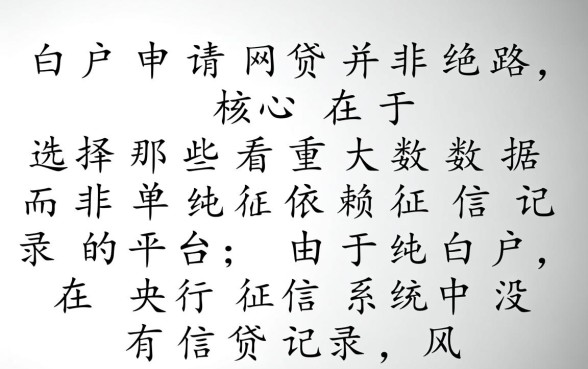 白户申请网贷并非绝路，
核心在于
选择那些看重大数数据
而非单纯征依赖征信记
录的平台；由于纯白户，
在央行征信系统中没
有信贷记录，风